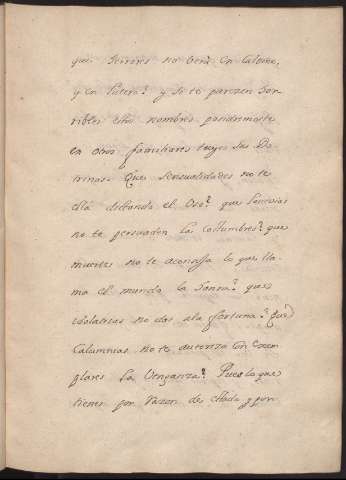 que errores no verá en Calvino,
y en Lutero? y si te parezen hor-
ribles estos nombres pondremoste
en otros familiares tuyos sus Do-
trinas. Que sensualidades no te
está dictando el Oro? que
no te persuaden las costumbres? que
muertes no te aconseja lo que lla-
ma el mundo la honra? que
idolatrias no das a la fortuna? Que
Calumnias no te autoriza con exem-
plares la Venganza? Pues lo que
tienes por razon de estado y por